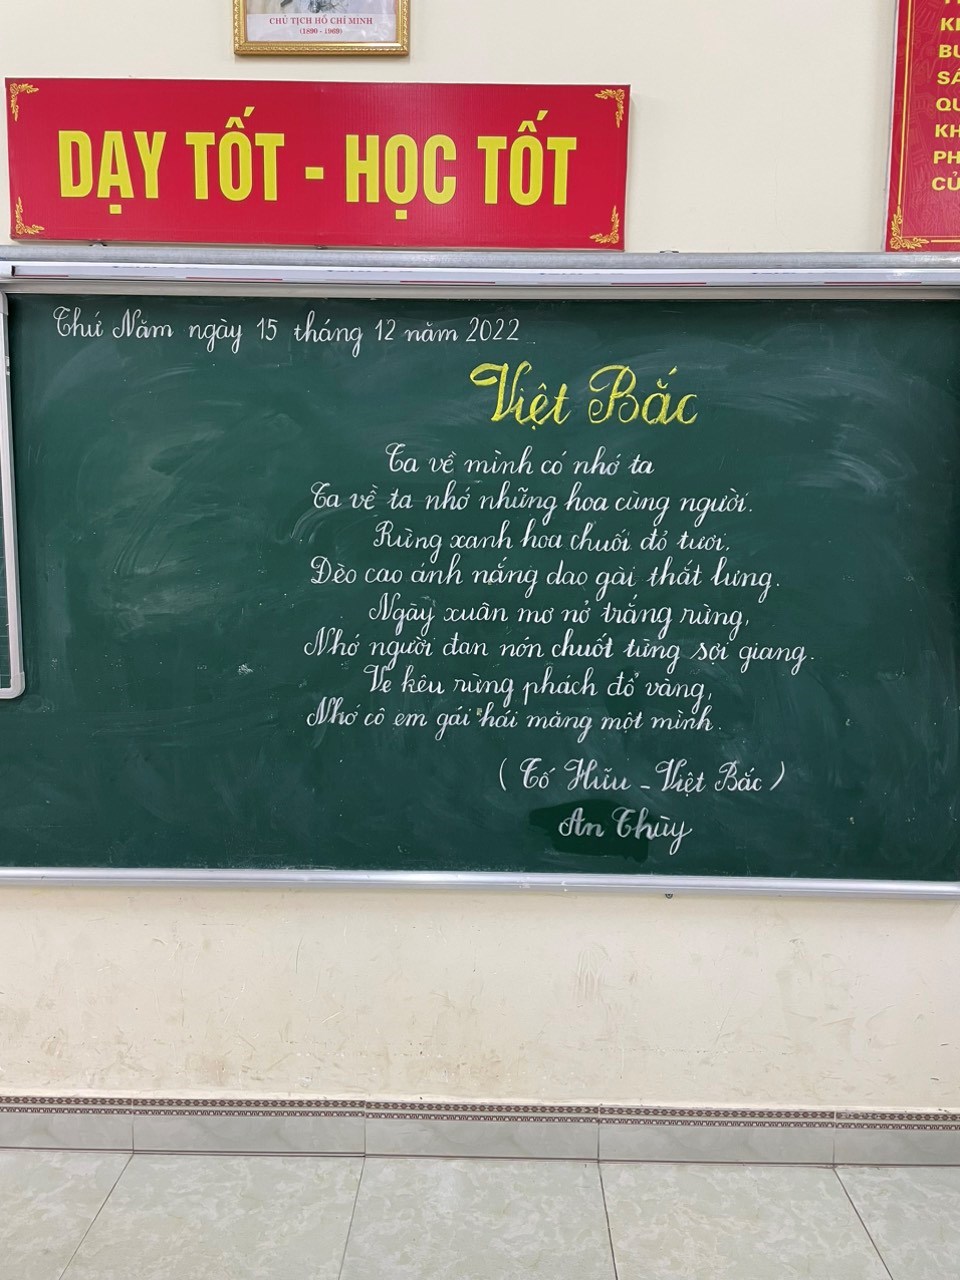 CHỦ TỊCH HỒ CHÍ MINH
(1890 - 1969)
DẠY TỐT - HỌC TỐT
KH
PH
Thứ Năm ngày 15 tháng 12 năm 2022
Việt Bắc
Ta về mình có nhớ ta
Ta về ta nhớ những hoa cùng người.
Rừng xanh hoa chuối đỏ tươi,
Đèo cao ánh nắng dao gài thắt lưng.
Ngày xuân mơ nở trắng rừng,
Nhớ người đan nón chuốt từng sợi giang.
Ve kêu rừng phách đổ vàng,
Nhớ cô em gái hái măng một mình.
( Tố Hữu - Việt Bắc )
An Thùy